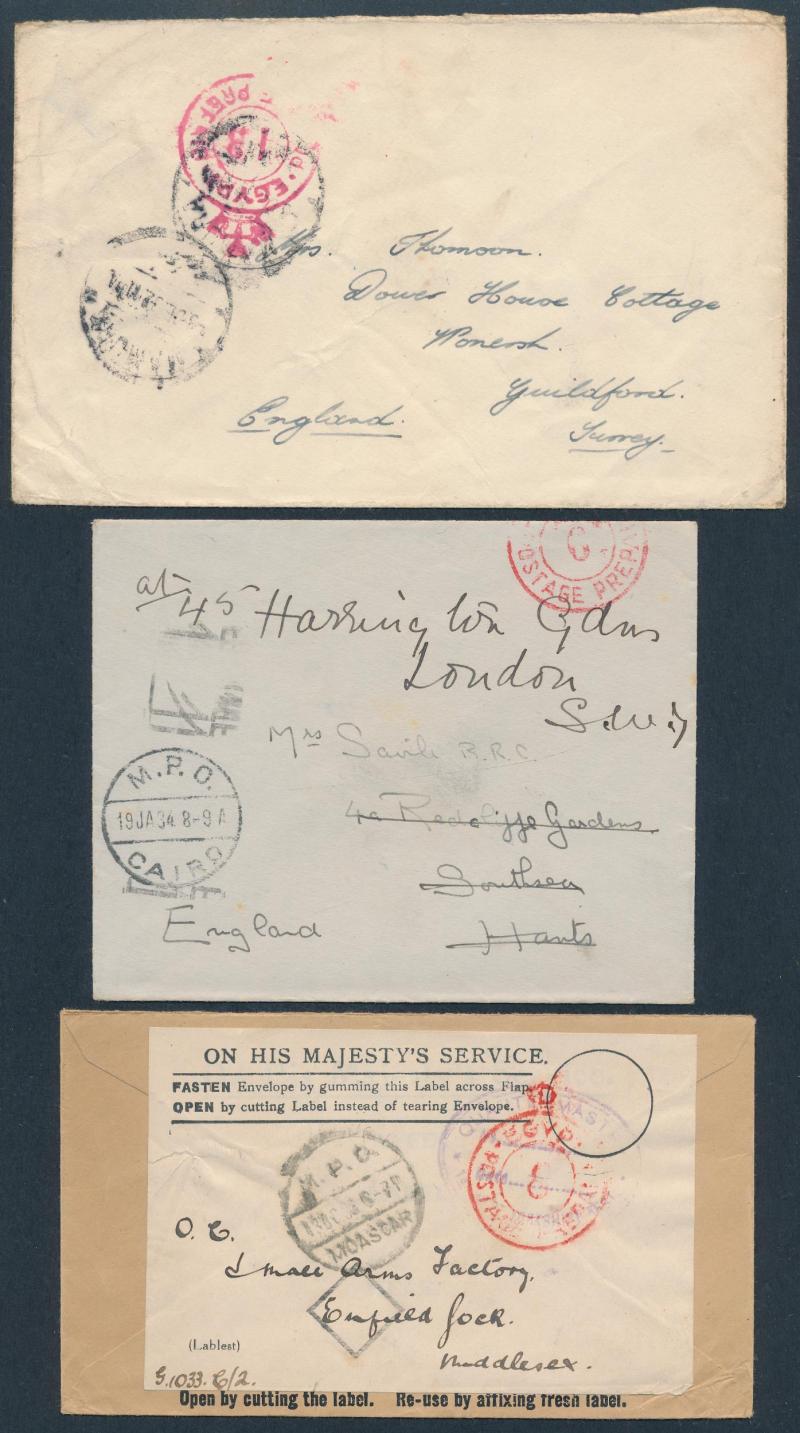 EGYPT
18
Mrs. Thomson.
Dower House Cottage
Wonersh.
Guildford.
England.
Surrey.
6
POSTAGE PREPA
at 45 Harrington Gdns
London
S.W.7
Mrs Savile R.R.C.
4a Redcliffe Gardens
Southsea
Hants
England
M.P.O.
19JA34.8-9A
CAIRO
ON HIS MAJESTY'S SERVICE.
FASTEN Envelope by gumming this Label across Flap.
OPEN by cutting Label instead of tearing Envelope.
M.P.O.
MOASCAR
EGYP
8
O. C.
Small Arms Factory,
Enfield Lock.
Middlesex.
(Lablest)
G.1033. C/2.
Open by cutting the label. Re-use by affixing fresh label.